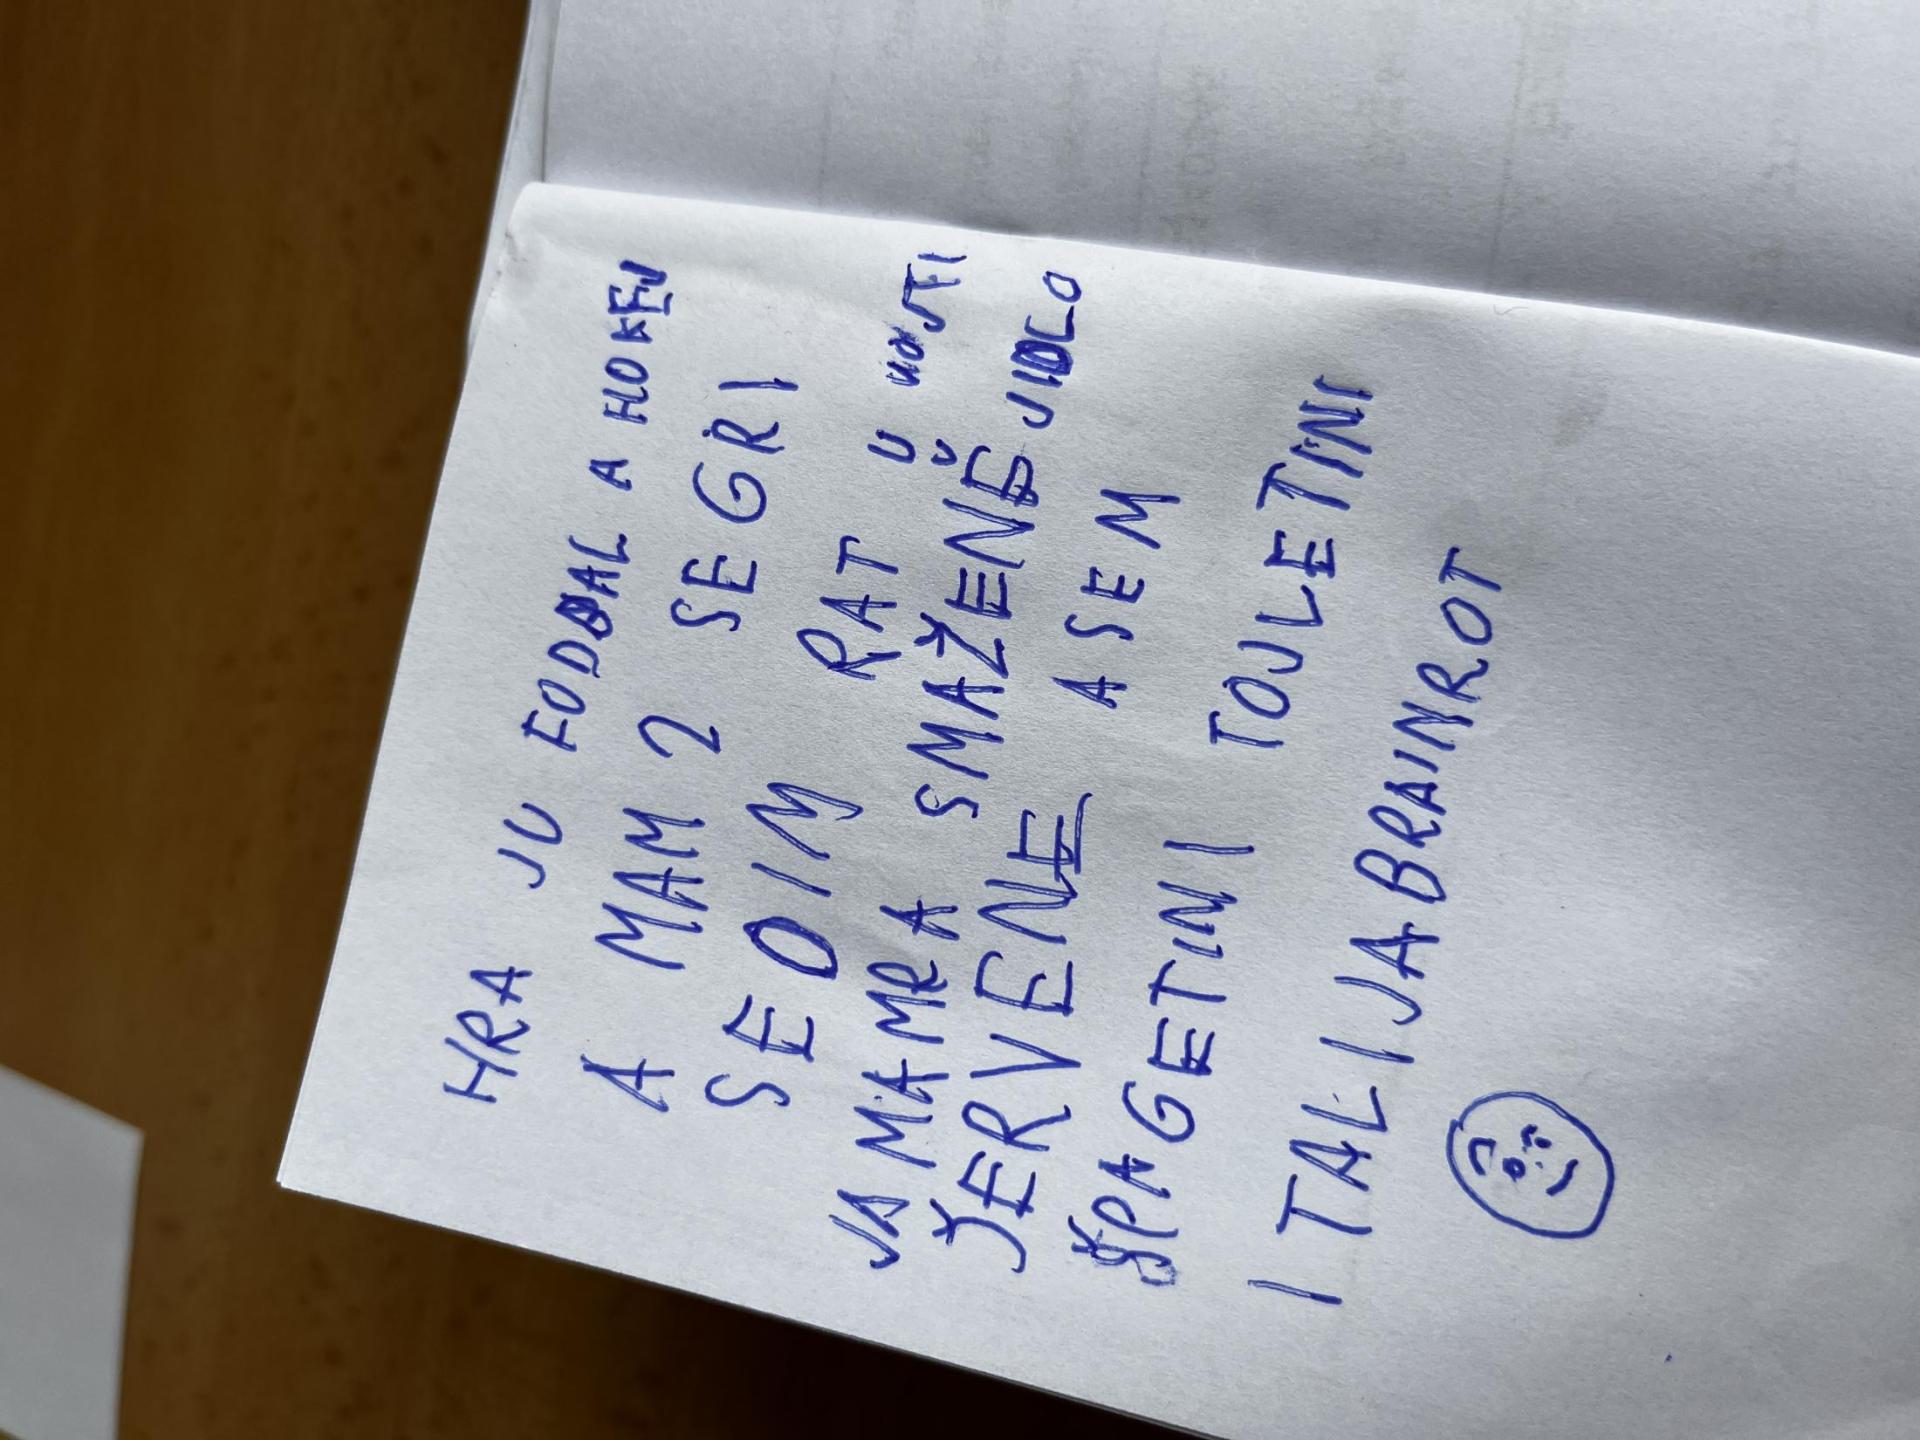 HRA JU FODBAL A HOKEJ
A MAM 2 SEGRI
SEDIM RAT U
JA MAMRA SMAŽENĚ JIDLO
ČERVENĚ A SEM
ŠPAGETINI TOJLETINI
I TALIJA BRAINROT